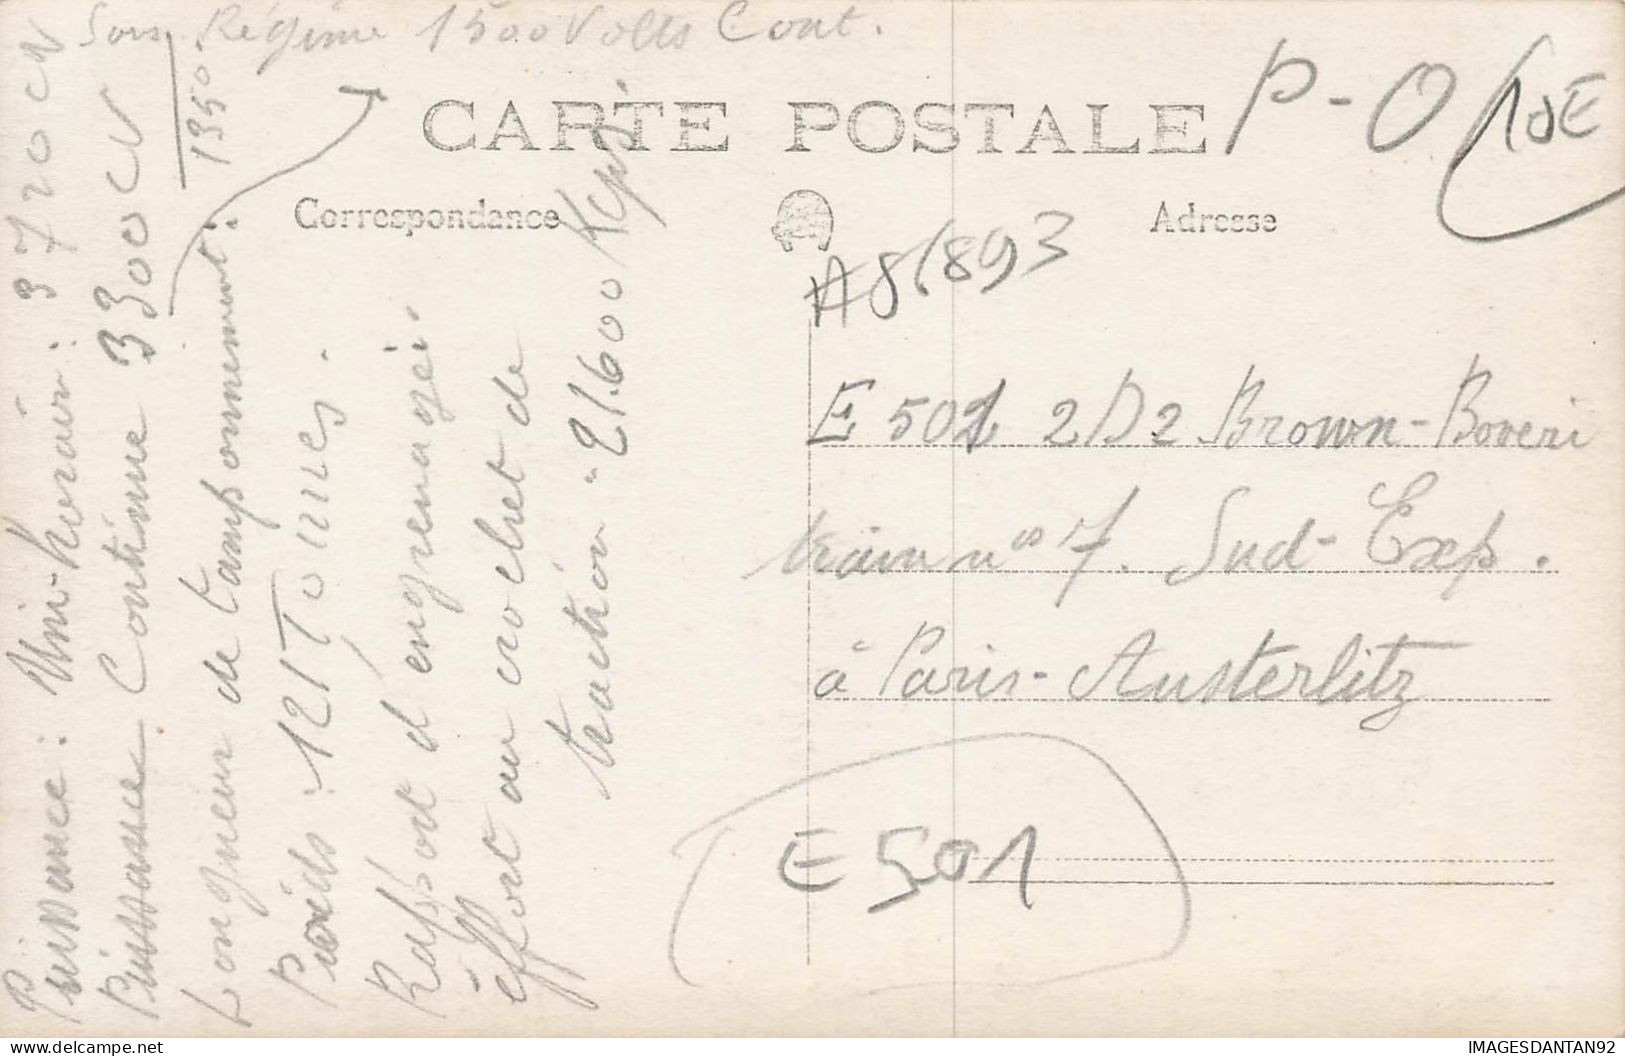 Sous Régime 1500 Volts Cont.
CARTE POSTALE
P-O
Correspondance
Adresse
A8/893
E 501 2D2 Brown-Boveri
train n° 7. Sud-Exp.
à Paris-Austerlitz
E 501
Puissance: Uni-horaire: 3720 CV
Puissance Continue 3300 CV
1350
Longueur de tamponnement:
Poids: 121 Tonnes.
Rapport d'engrenage:
effort au crochet de
traction - 21.600 Kgs
IMAGESDANTAN92